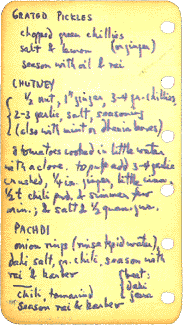 GRATED PICKLES
chopped green chillies
salt & lemon (or ginger)
season with oil & rai
CHUTNEY
½ nut, 1" ginger, 3-4 gr. chillies
2-3 garlic, salt, seasoning
(also with mint or dhania leaves)
2 tomatoes cooked in little water
with a clove. to pulp add 3-4 garlic
crushed, ¼ in. ginger, little
½ t chili pwd, & simmer few
min.; & salt & ½ sugar.
PACHDI
onion rings (rinse water),
dahi salt, gr. chili, season with
rai &
chili, tamarind
season rai &
beet:
dahi
jeera